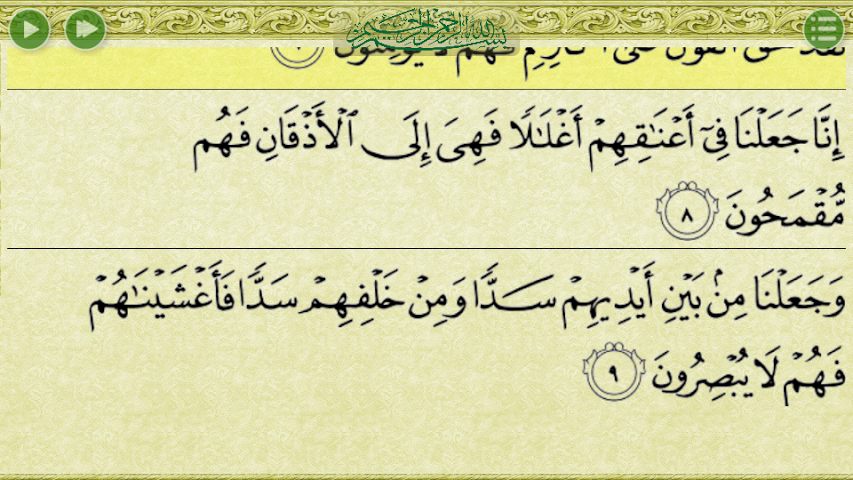 بسم الله الرحمن الرحيم
فَهُمْ لَا يُؤْمِنُونَ
إِنَّا جَعَلْنَا فِيٓ أَعْنَٰقِهِمْ أَغْلَٰلًا فَهِىَ إِلَى ٱلْأَذْقَانِ فَهُم
مُّقْمَحُونَ ٨
وَجَعَلْنَا مِنۢ بَيْنِ أَيْدِيهِمْ سَدًّا وَمِنْ خَلْفِهِمْ سَدًّا فَأَغْشَيْنَٰهُمْ
فَهُمْ لَا يُبْصِرُونَ ٩